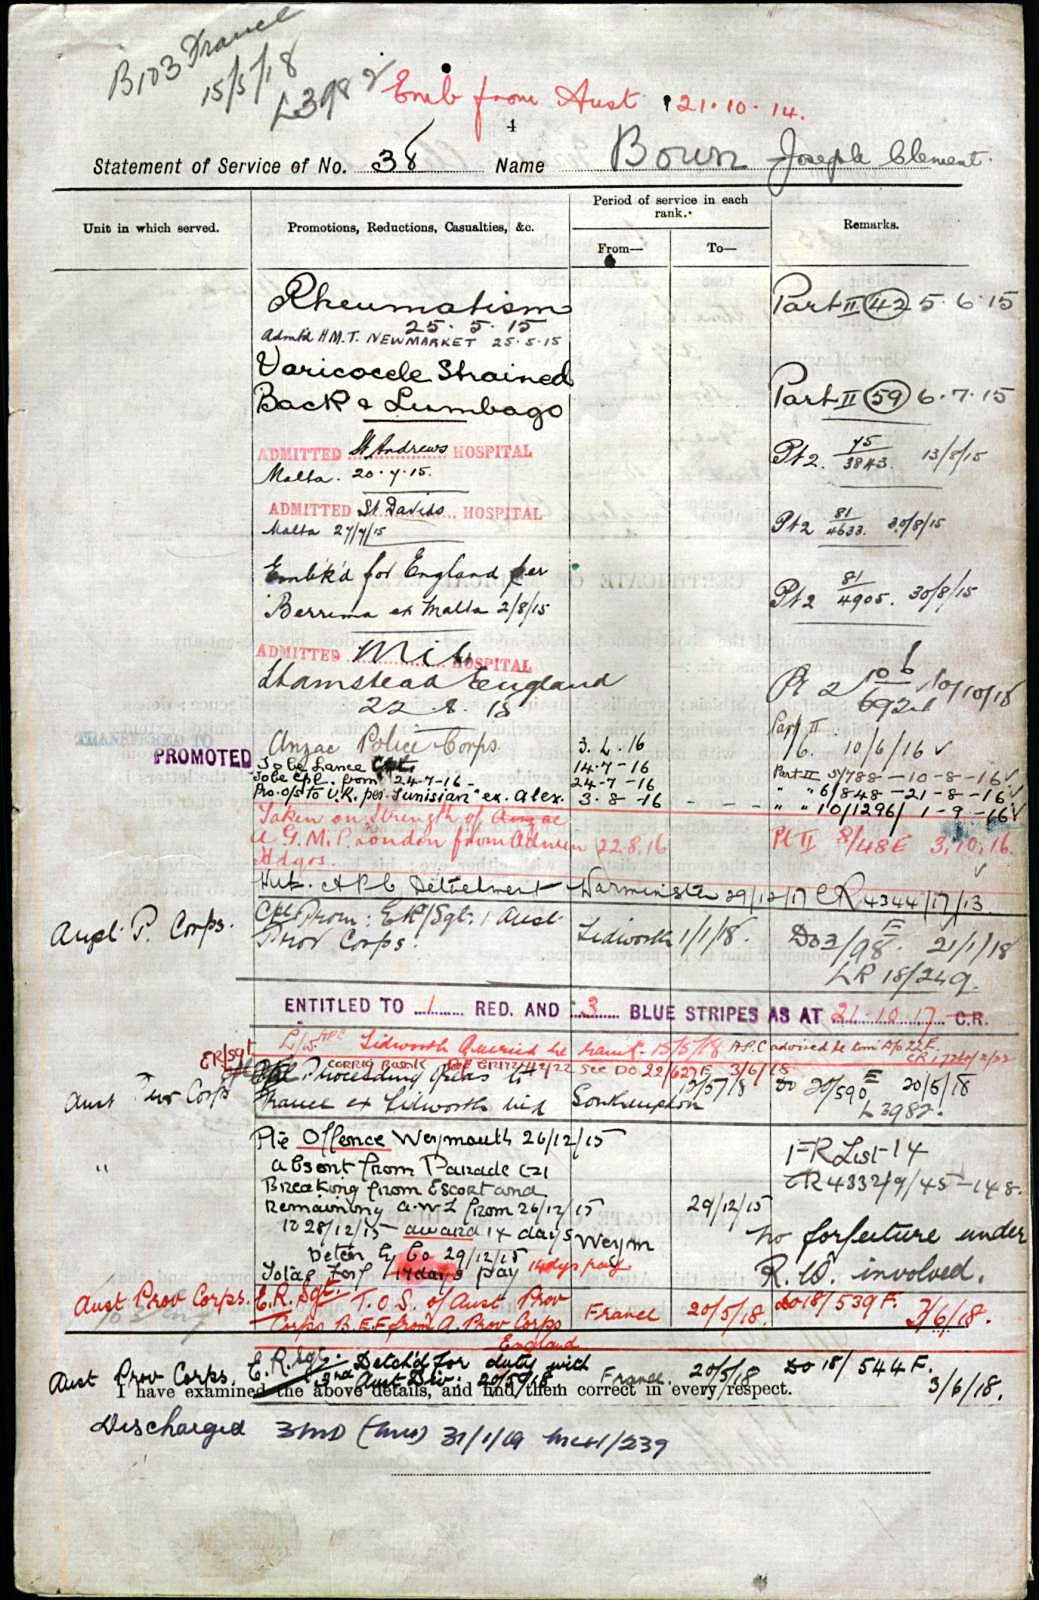 B103 France
15/5/18
L3982
Emb from Aust 21.10.14.
4
Statement of Service of No. 38 Name Bown Joseph Clement.
Unit in which served.
Promotions, Reductions, Casualties, &c.
Period of service in each rank.
From—
To—
Remarks.
Rheumatism
25.5.15
Part II 42 5.6.15
Admtd H.M.T. NEWMARKET 25.5.15
Varicocele Strained
Back & Lumbago
Part II 59 6.7.15
ADMITTED St Andrews HOSPITAL
Malta. 20.7.15.
Pt 2. 75/3843. 13/8/15
ADMITTED St Davids HOSPITAL
Malta 27/7/15
Pt 2 81/4633. 30/8/15
Embk'd for England per
Berrima ex Malta 2/8/15
Pt 2 81/4905. 30/8/15
ADMITTED Mil HOSPITAL
England
22.8.15
Pt 2 106 10/10/15
TRANSFERRED TO
PROMOTED
Anzac Police Corps. 3.4.16
Part II 6. 10/6/16
To be Lance Cpl. 14-7-16
Part II 5/788-10-8-16
To be Cpl. from 24-7-16- 24-7-16
" " 6/848-21-8-16
Pro. o/s to U.K. per "Tunisian" ex. Alex. 3-8-16 - - -
" " 10/1296/ 1-9-16
Taken on Strength of Anzac
A.G.M.P. London from Admin 22.8.16
Hdqrs.
Pt II 8/48E 3.10.16.
A.P.C Detachment Warminster 29/12/17 CR 4344/17/13.
Aust. P. Corps.
Cpl Prom: ER/Sgt. Aust
Prov Corps. Tidworth 1/1/18.
Do 3/98. E 21/1/18
LR 18/249.
ENTITLED TO 1 RED. AND 3 BLUE STRIPES AS AT 21.10.17 C.R.
Tidworth Queried re rank. 15/5/18 A.P.C advised
ER/Sgt
See DO 22/627E 3/6/18
Aust Prov Corps
Proceeding O/seas to
France ex Tidworth via Southampton 2/5/18
Do 20/590 E 20/5/18
L3982.
"
Pte Offence Weymouth 26/12/15
absent from Parade (2)
Breaking from Escort and
Remaining A.W.L from 26/12/15
to 28/12/15 — award 14 days
Weym 29/12/15
Deten by Co 29/12/15
Total Forf 17 days pay 17 dys pay
FR List 14
CR 4332/9/45-148.
no forfeiture under
R.W. involved.
Aust Prov Corps.
E.R. Sgt. T.O.S. of Aust Prov
Corps B.E.F from A. Prov Corps
England
France 20/5/18. Do 18/539 F. 3/6/18.
Aust Prov Corps. E.R. Sgt. Detch'd for duty with
2nd Aust Div. 20/5/18 France. 20/5/18 Do 18/544 F.
3/6/18.
I have examined the above details, and find them correct in every respect.
Discharged 3MD 31/1/19